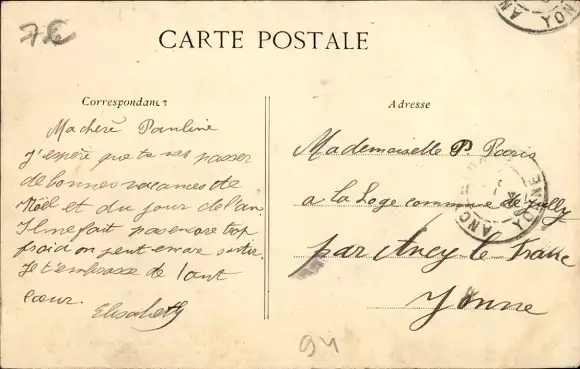 7€
CARTE POSTALE
Correspondance
Adresse
Ma chère Pauline
J'espère que tu vas passer
de bonnes vacances de
Noël et du jour de l'an
Il ne fait pas encore trop
froid on peut encore sortir.
Je t'embrasse de tout
cœur.
Elisabeth
Mademoiselle P. Paris
a la Loge commune de Jully
par Ancy le Franc
Yonne
94
YONNE